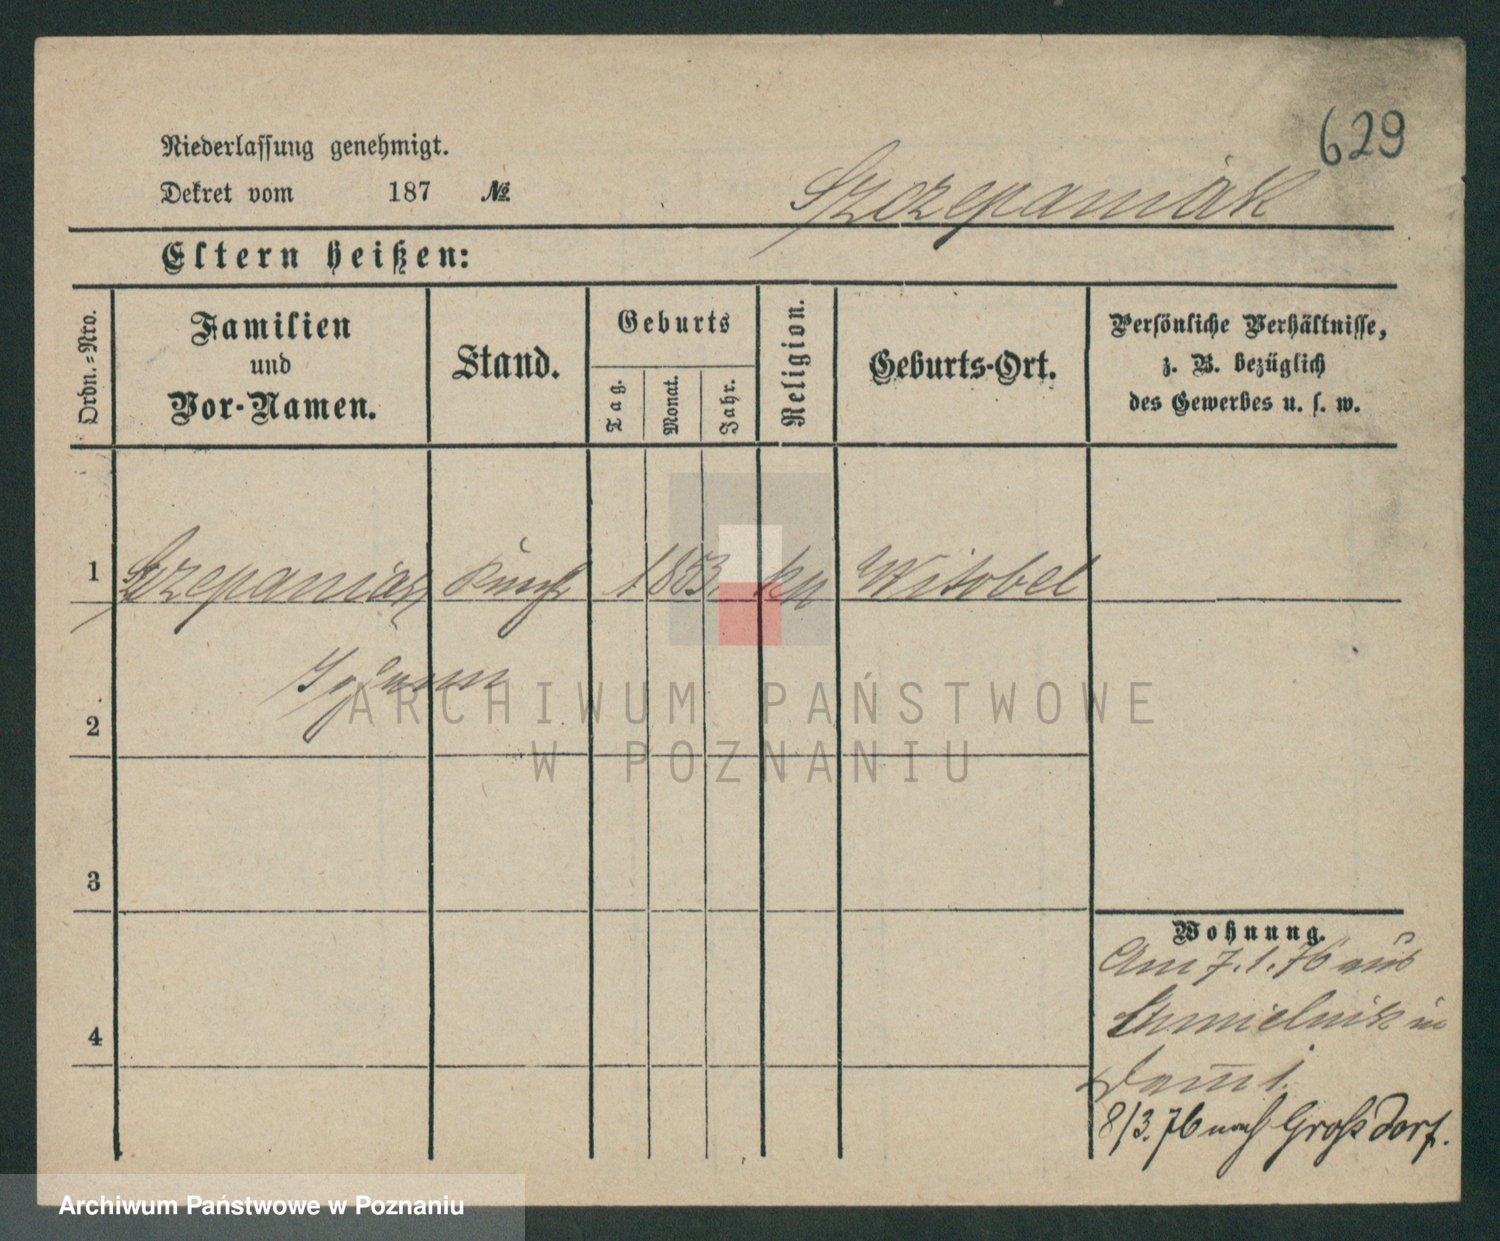 629
Niederlassung genehmigt.
Dekret vom 187 №
Szczepaniak
Eltern heißen:
Ordn.-Nro.
Familien
und
Vor-Namen.
Stand.
Geburts
Tag.
Monat.
Jahr.
Religion.
Geburts-Ort.
Persönliche Verhältnisse,
z. B. bezüglich
des Gewerbes u. s. w.
1 Szczepaniak 1853. Witobel
Johann
2
3
4
Wohnung.
Am 7.1.76 aus
Chmielnik in
8/3.76 nach Großdorf.
ARCHIWUM PAŃSTWOWE
W POZNANIU
Archiwum Państwowe w Poznaniu